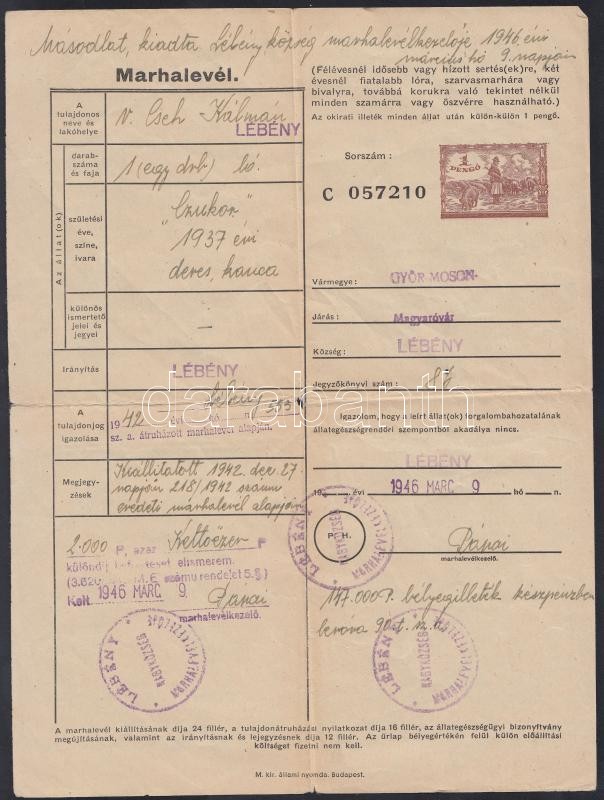 Másodlat, kiadta Lébény község marhalevélkezelője 1946 évi
március hó 9. napján
Marhalevél.
(Félévesnél idősebb vagy hízott sertés(ek)re, két
évesnél fiatalabb lóra, szarvasmarhára vagy
bivalyra, továbbá korukra való tekintet nélkül
minden szamárra vagy öszvérre használható.)
Az okirati illeték minden állat után külön-külön 1 pengő.
A
tulajdonos
neve és
lakóhelye
v. Cseh Kálmán
LÉBÉNY
Az állat(ok)
darab-
száma
és faja
1 (egy drb) ló.
születési
éve,
színe,
ivara
"Czukor"
1937 évi
deres, kanca
különös
ismertető
jelei és
jegyei
—
Irányítás
LÉBÉNY
A
tulajdonjog
igazolása
1942 évi hó n
sz. a. átruházott marhalevél alapján.
Megjegy-
zések
Kiállítatott 1942. dec. 27
napján 218/1942 számú
eredeti marhalevél alapján
2.000 P, azaz Kettőezer P
különdíj
elismerem.
M. E. számu rendelet 5.§)
Kelt. 1946 MARC 9
Pápai
marhalevélkezelő.
LÉBÉNY NAGYKÖZSÉG MARHALEVÉLKEZELŐJE
Sorszám:
C 057210
1
PENGŐ
Vármegye: GYŐR-MOSON-
Járás: Magyaróvár
Község: LÉBÉNY
Jegyzőkönyvi szám: 87
Igazolom, hogy a leírt állat(ok) forgalombahozatalának
állategészségrendőri szempontból akadálya nincs.
LÉBÉNY
19 évi 1946 MARC 9 hó n.
P. H.
LÉBÉNY NAGYKÖZSÉG MARHALEVÉLKEZELŐJE
Pápai
marhalevélkezelő.
147.000 P. bélyegilleték készpénzben
leróva
LÉBÉNY NAGYKÖZSÉG MARHALEVÉLKEZELŐJE
A marhalevél kiállításának díja 24 fillér, a tulajdonátruházási nyilatkozat díja 16 fillér, az állategészségügyi bizonyítvány
megújításának, valamint az irányításnak és lejegyzésnek díja 12 fillér. Az űrlap bélyegértékén felül külön előállítási
költséget fizetni nem kell.
M. kir. állami nyomda. Budapest.
darabanth